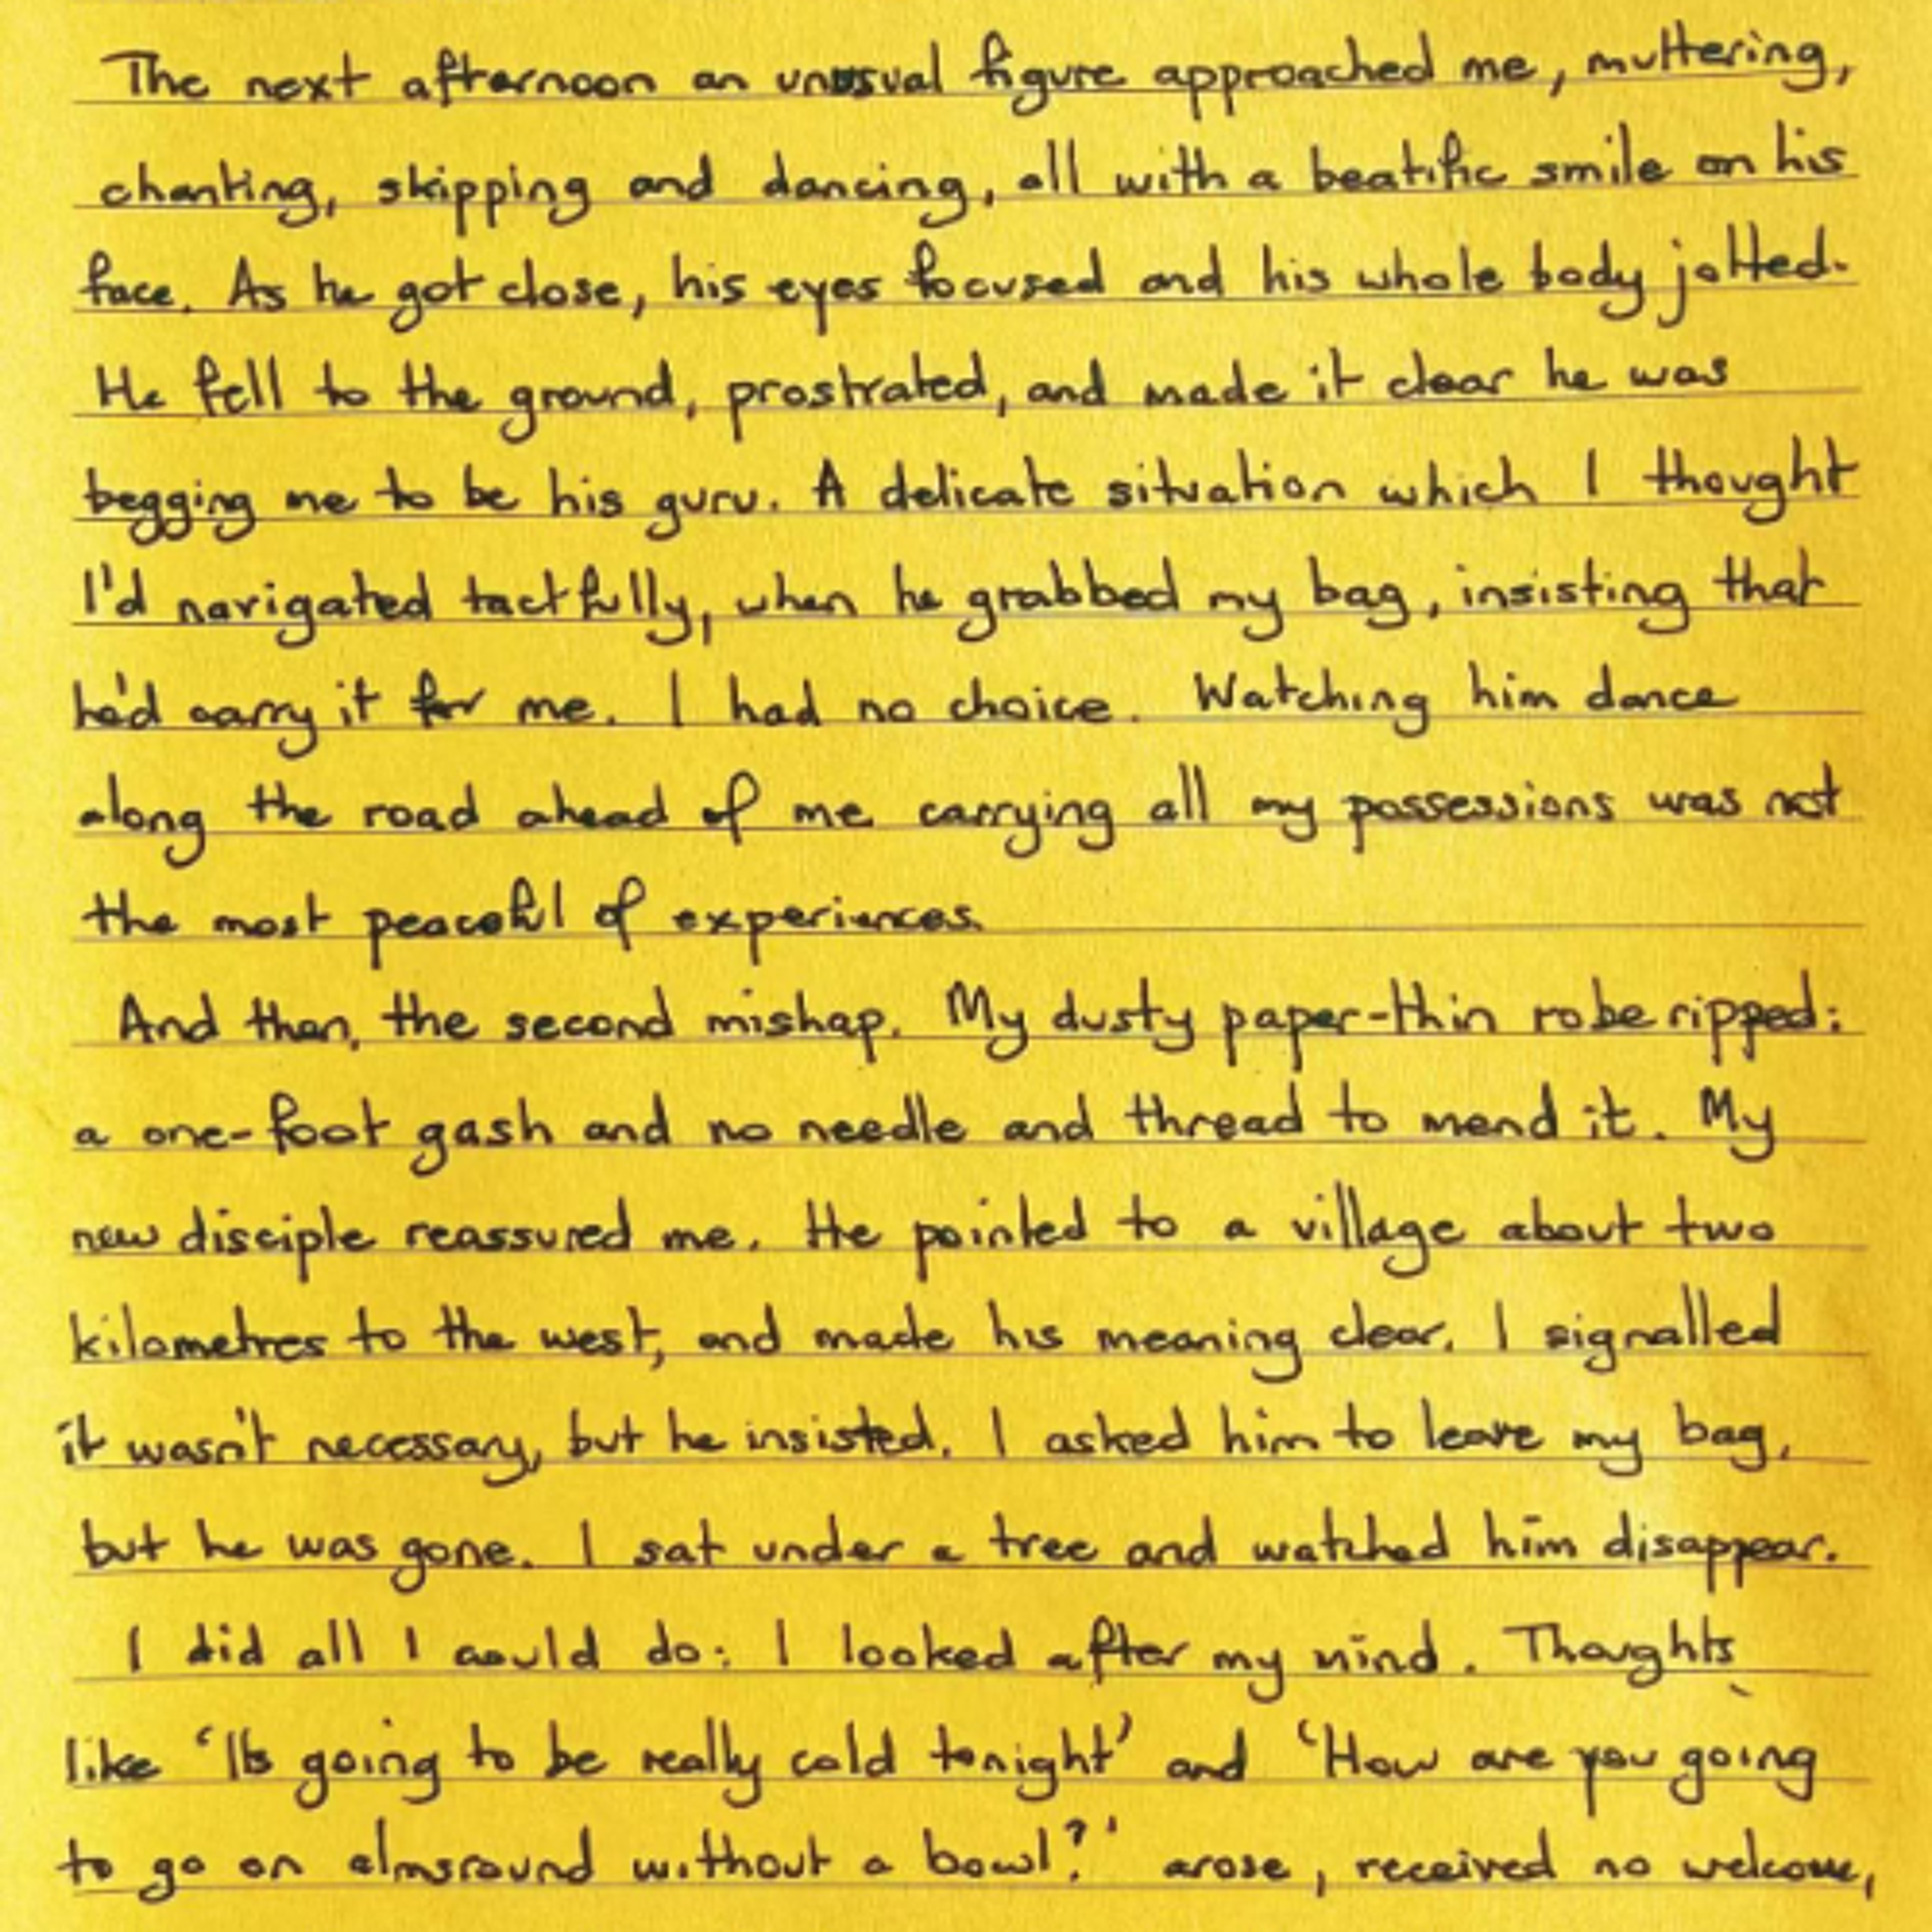 The next afternoon an unusual figure approached me, muttering,
chanting, skipping and dancing, all with a beatific smile on his
face. As he got close, his eyes focused and his whole body jolted.
He fell to the ground, prostrated, and made it clear he was
begging me to be his guru. A delicate situation which I thought
I'd navigated tactfully, when he grabbed my bag, insisting that
he'd carry it for me. I had no choice. Watching him dance
along the road ahead of me carrying all my possessions was not
the most peaceful of experiences.
And then, the second mishap. My dusty paper-thin robe ripped:
a one-foot gash and no needle and thread to mend it. My
new disciple reassured me. He pointed to a village about two
kilometres to the west, and made his meaning clear. I signalled
it wasn't necessary, but he insisted. I asked him to leave my bag,
but he was gone. I sat under a tree and watched him disappear.
I did all I could do: I looked after my mind. Thoughts
like 'Its going to be really cold tonight' and 'How are you going
to go on almsround without a bowl?' arose, received no welcome,